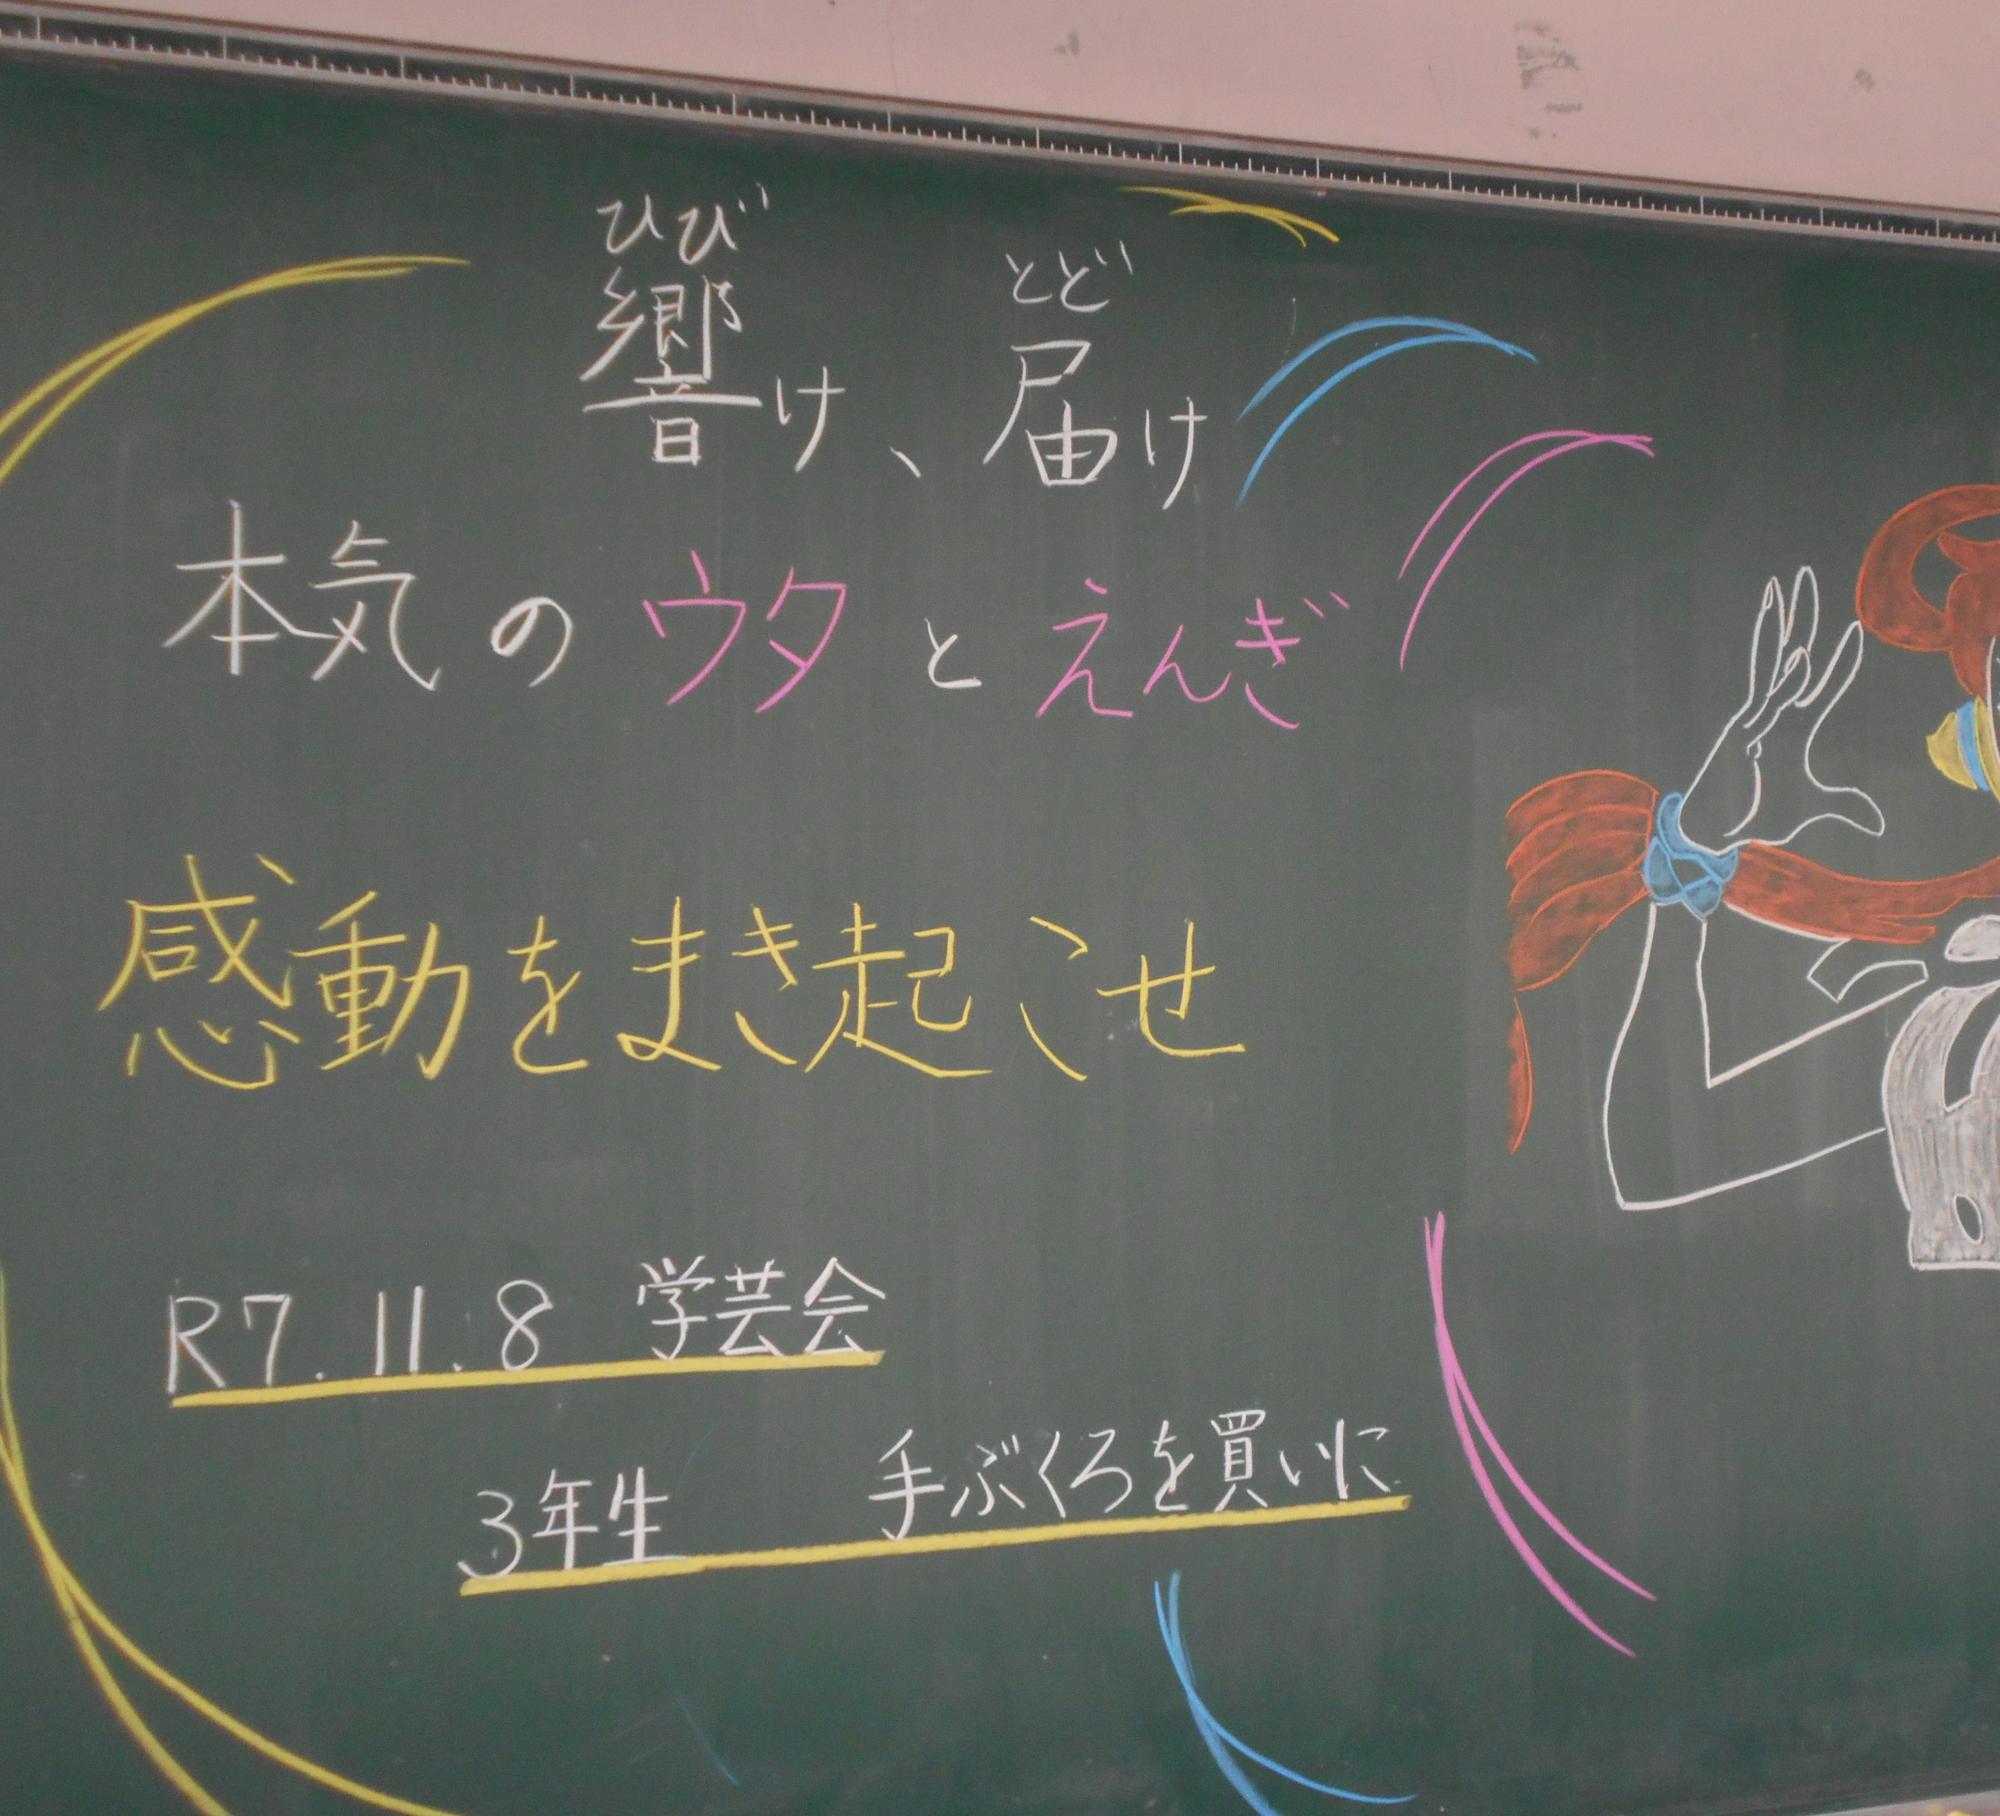 ひび とど
響け、届け
本気のウタとえんぎ
感動をまき起こせ
R7.11.8 学芸会
3年生 手ぶくろを買いに